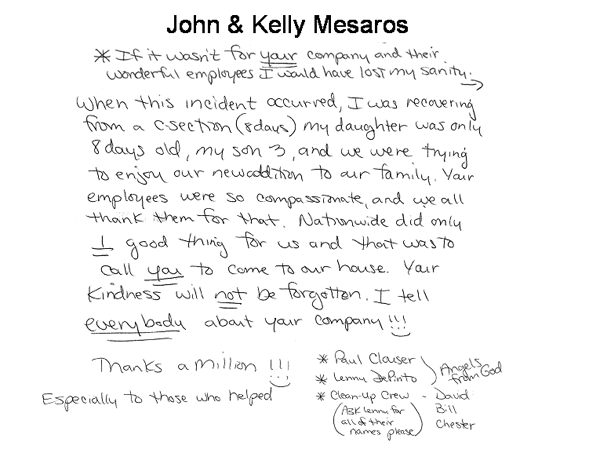 John & Kelly Mesaros
* If it wasn't for your company and their
wonderful employees I would have lost my sanity. →
When this incident occurred, I was recovering
from a c-section (8days) my daughter was only
8 days old, my son 3, and we were trying
to enjoy our new addition to our family. Your
employees were so compassionate, and we all
thank them for that. Nationwide did only
1 good thing for us and that was to
call you to come to our house. Your
Kindness will not be forgotten. I tell
everybody about your company !!!
Thanks a million !!!
Especially to those who helped
* Paul Clauser
* Lenny DePinto
Angels
from God
* Clean-up Crew - David
(Ask Lenny for
all of their
names please)
Bill
Chester